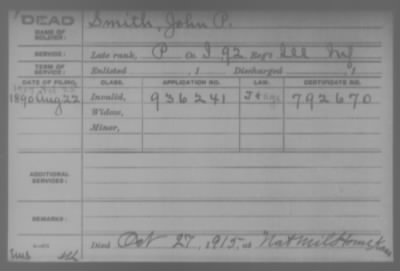 DEAD
NAME OF SOLDIER: Smith, John P.
SERVICE: Late rank, P Co. I, 92 Reg't Ill Inf
TERM OF SERVICE: Enlisted , 1 Discharged , 1
DATE OF FILING. CLASS. APPLICATION NO. LAW. CERTIFICATE NO.
1890 Aug 22 Invalid, 936241 792670
Widow,
Minor,
ADDITIONAL SERVICES:
REMARKS:
Died Oct 27, 1915, at Nat Mil Home, Kan